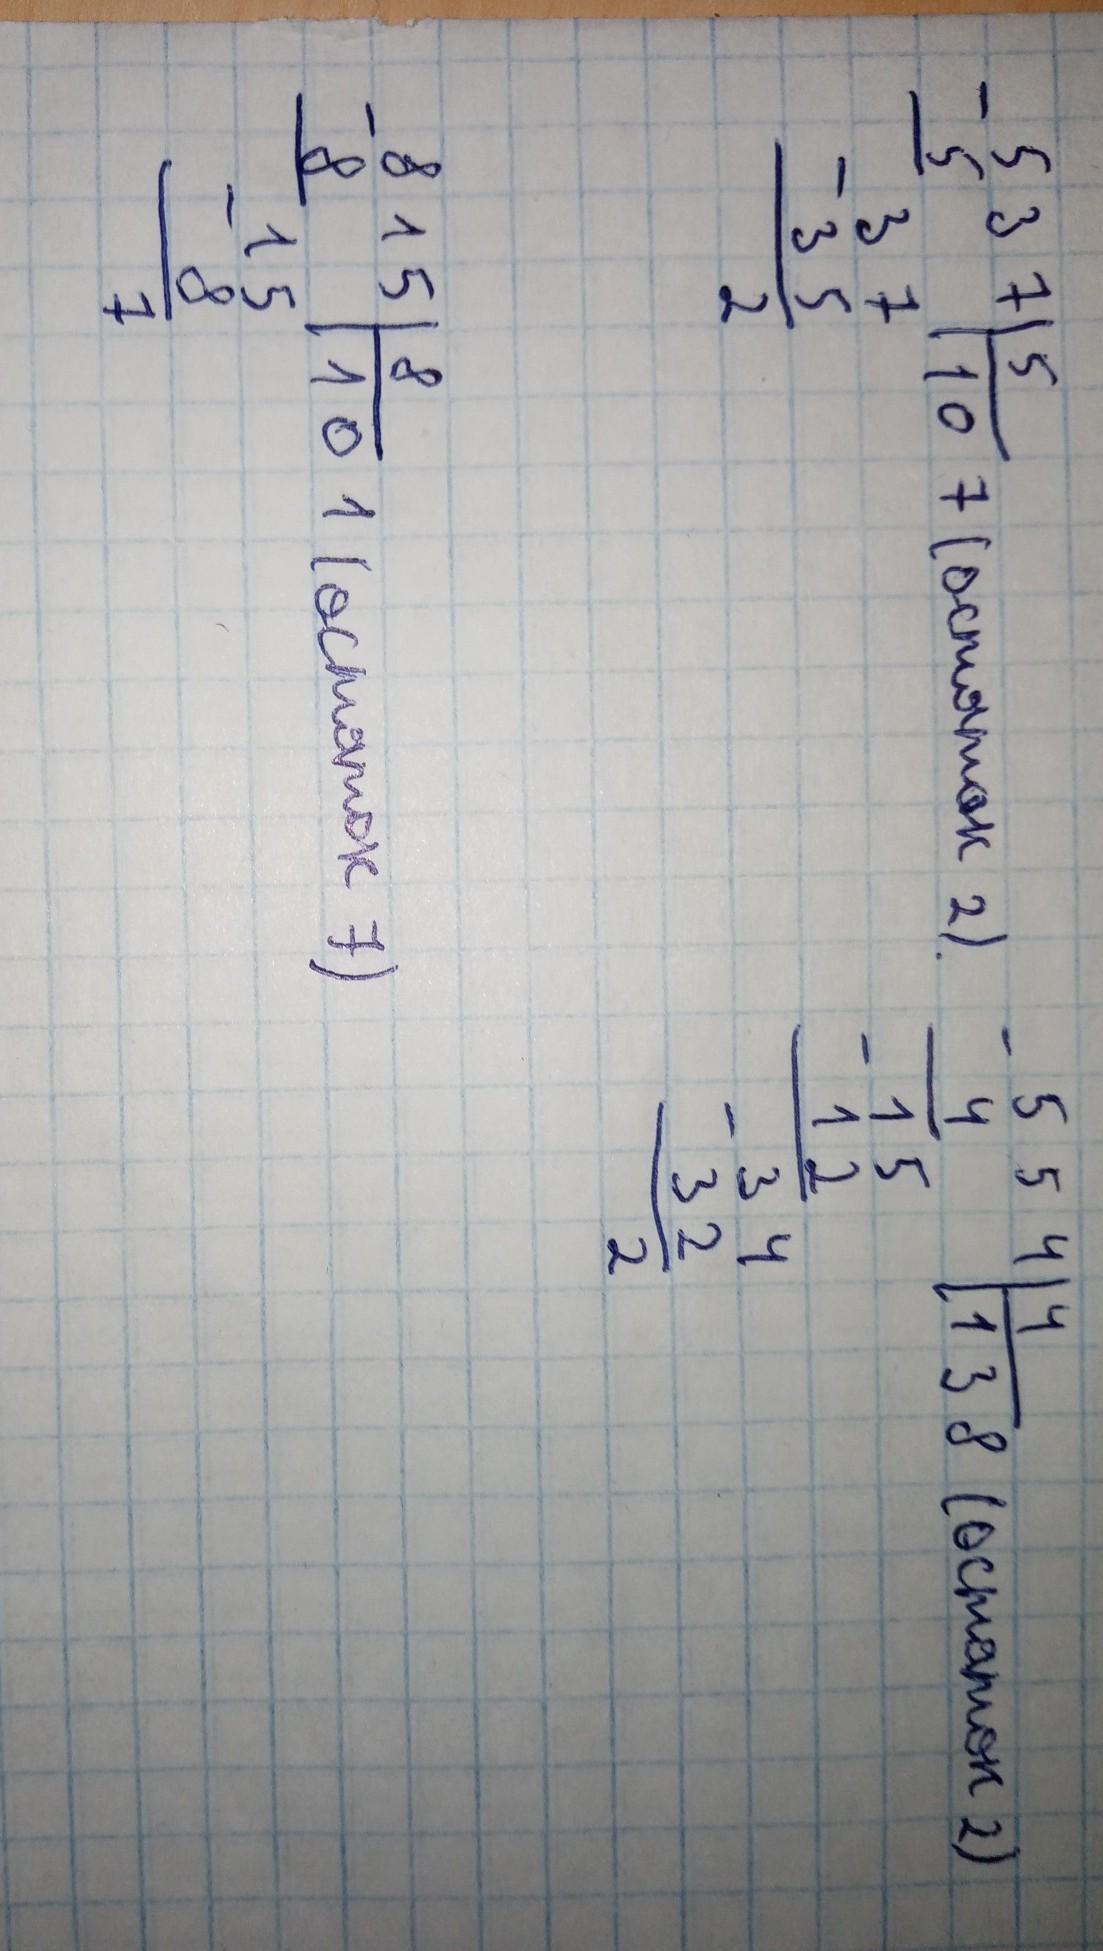 -537|5
5 107 (остаток 2).
-37
35
2
-554|4
4 138 (остаток 2)
-15
12
-34
32
2
-815|8
8 101 (остаток 7)
-15
8
7